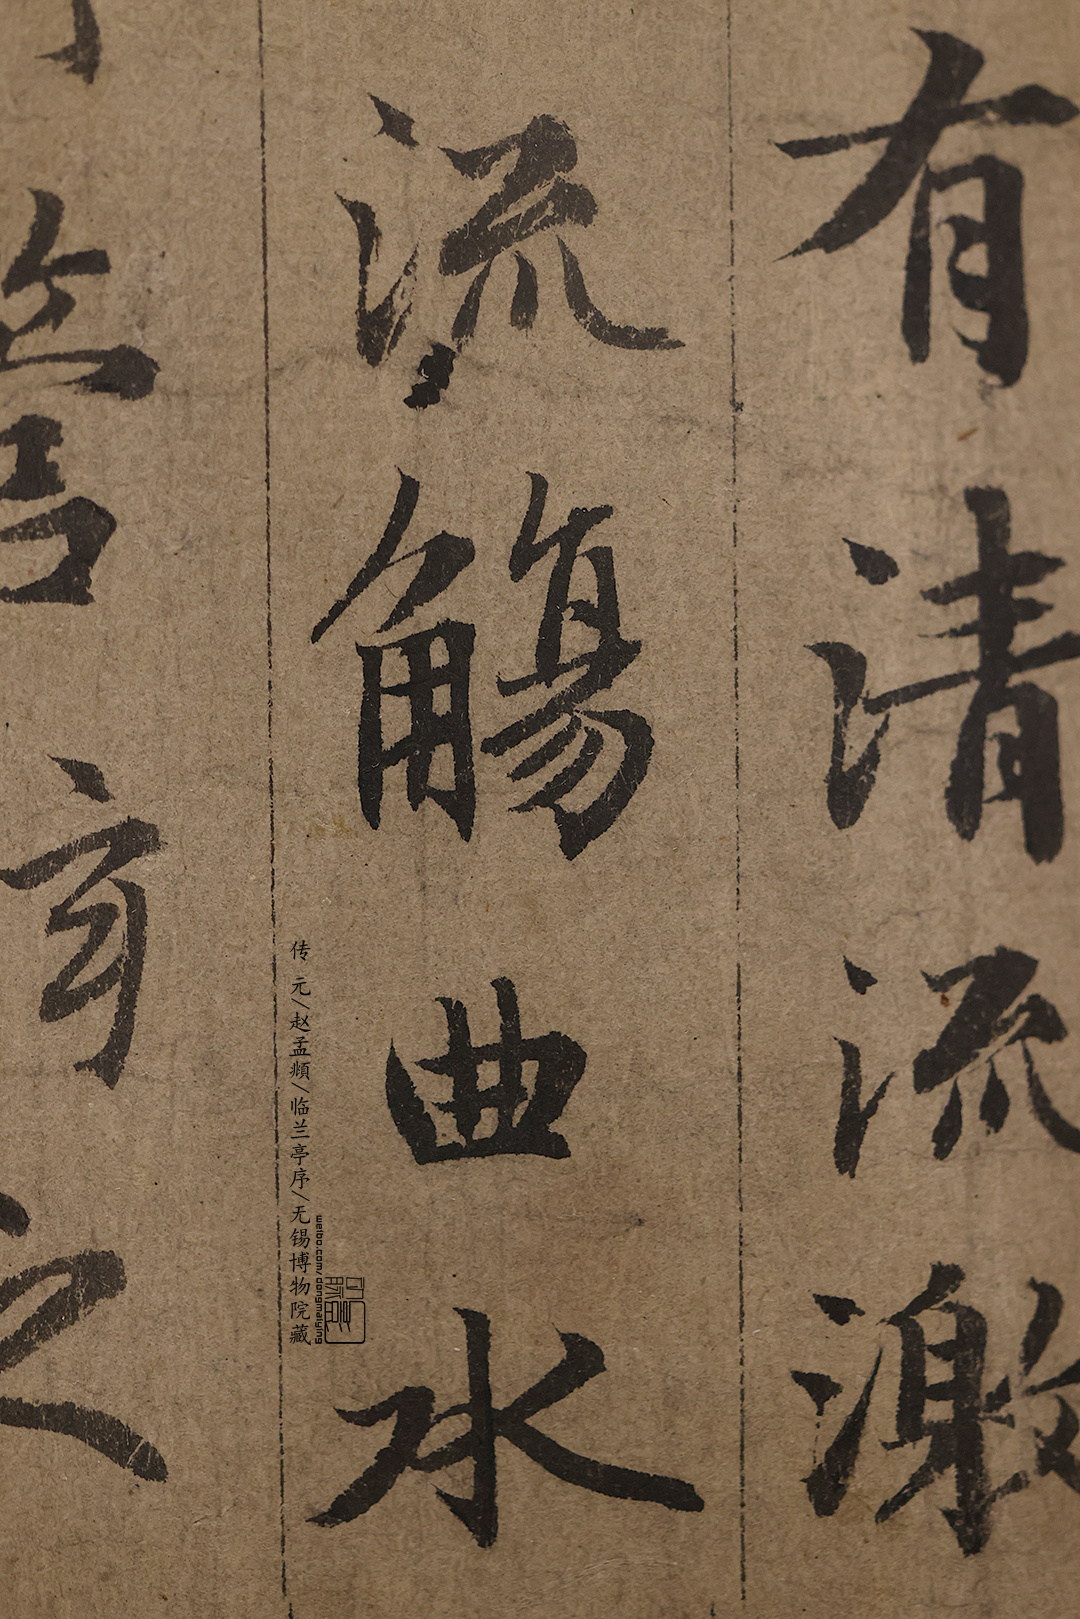 有清流激
流觴曲水
言
亥之
传 元/赵孟頫/临兰亭序/无锡博物院藏
weibo.com/dongmaiying